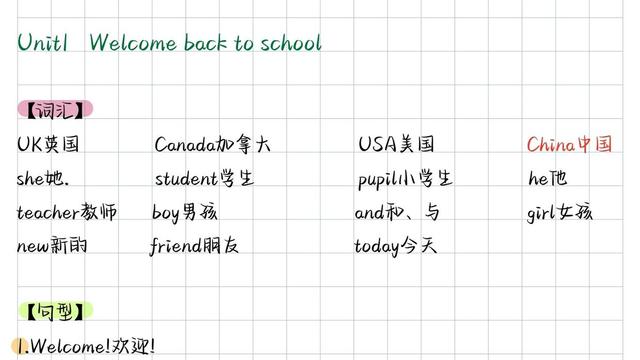 Unit1 Welcome back to school
【词汇】
UK英国 Canada加拿大 USA美国 China中国
she她. student学生 pupil小学生 he他
teacher教师 boy男孩 and和、与 girl女孩
new新的 friend朋友 today今天
【句型】
1.Welcome!欢迎!